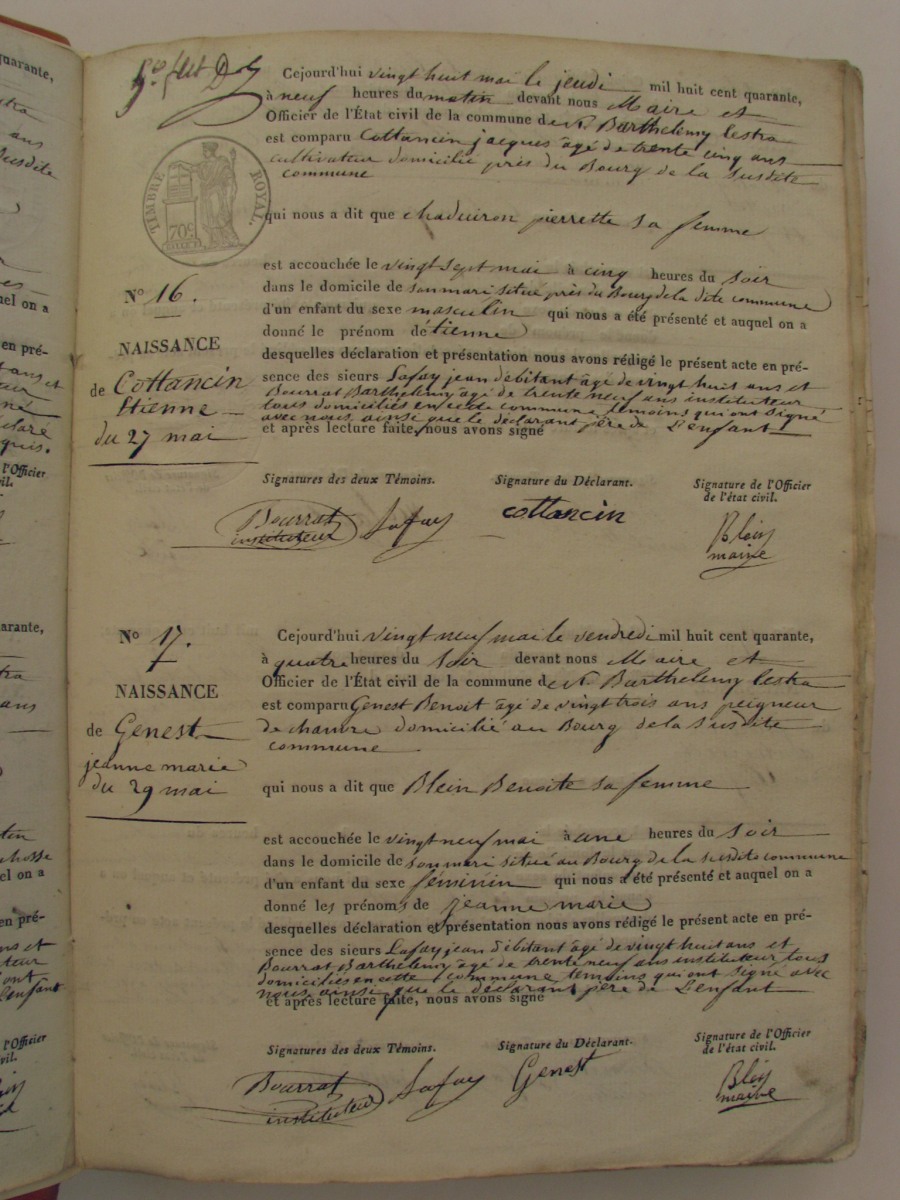 5e flt
Cejourd'hui vingt huit mai le jeudi mil huit cent quarante,
à neuf heures du matin devant nous Maire et
Officier de l'État civil de la commune de St Barthelemy lestra
est comparu Cottancin jacques âgé de trente cinq ans
cultivateur domicilié près du Bourg de la susdite
commune
TIMBRE ROYAL.
70c
qui nous a dit que chaduiron pierrette sa femme
est accouchée le vingt sept mai à cinq heures du soir
dans le domicile de son mari situé près du Bourg de la dite commune
d'un enfant du sexe masculin qui nous a été présenté et auquel on a
donné le prénom détienne
desquelles déclaration et présentation nous avons rédigé le présent acte en pré-
sence des sieurs Lafay jean débitant âgé de vingt huit ans et
Bourrat Barthelemy âgé de trente neuf ans instituteur
tous domiciliés en cette commune temoins qui ont signé
avec nous, ainsi que le déclarant père de L'enfant
et après lecture faite, nous avons signé
No 16.
NAISSANCE
de Cottancin
Etienne
du 27 mai
Signatures des deux Témoins. Signature du Déclarant. Signature de l'Officier
de l'état civil.
Bourrat Lafay cottancin Blein
instituteur maire
No 17.
NAISSANCE
de Genest
jeanne marie
du 29 mai
Cejourd'hui vingt neuf mai le vendredi mil huit cent quarante,
à quatre heures du soir devant nous Maire et
Officier de l'État civil de la commune de St Barthelemy lestra
est comparu Genest Benoit âgé de vingt trois ans peigneur
de chanvre domicilié au Bourg de la susdite
commune
qui nous a dit que Blein Benoite sa femme
est accouchée le vingt neuf mai à une heures du soir
dans le domicile de son mari situé au Bourg de la susdite commune
d'un enfant du sexe féminin qui nous a été présenté et auquel on a
donné les prénoms de jeanne marie
desquelles déclaration et présentation nous avons rédigé le présent acte en pré-
sence des sieurs Lafay jean débitant âgé de vingt huit ans et
Bourrat Barthelemy âgé de trente neuf ans instituteur tous
domiciliés en cette commune temoins qui ont signé avec
nous, ainsi que le déclarant père de L'enfant
et après lecture faite, nous avons signé
Signatures des deux Témoins. Signature du Déclarant. Signature de l'Officier
de l'état civil.
Bourrat Lafay Genest Blein
instituteur maire